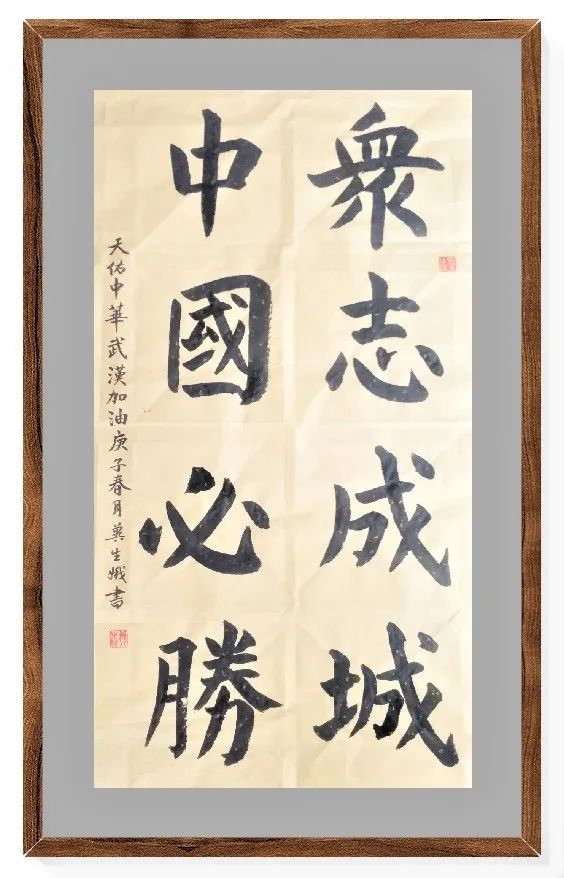 衆志成城
中國必勝
天佑中華武漢加油庚子春月莫生娥書